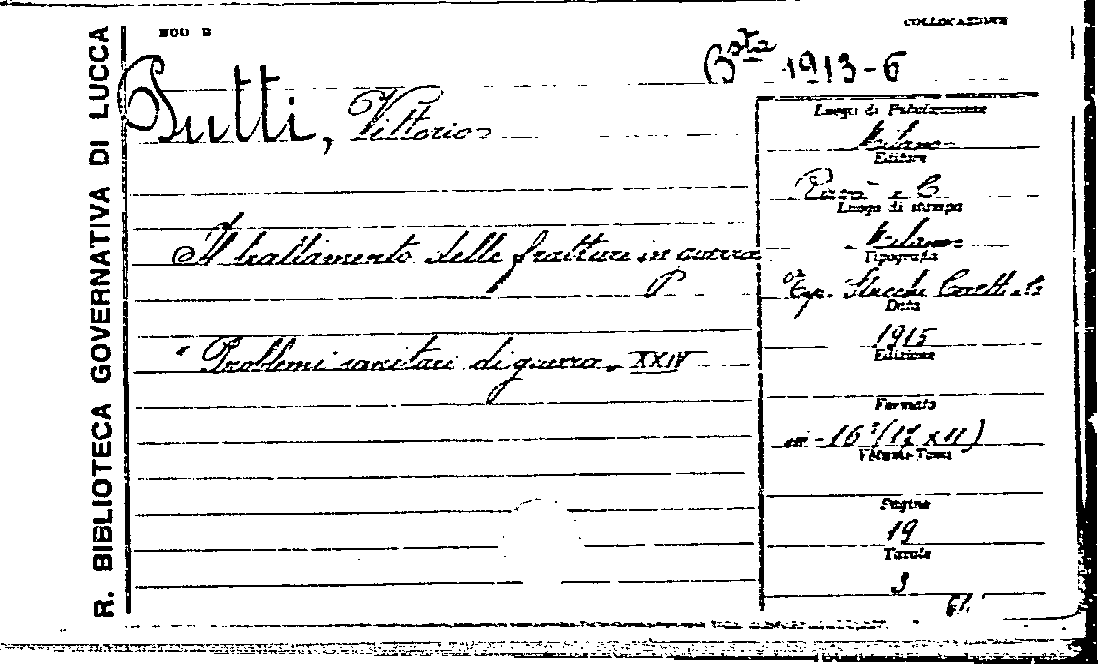 R. BIBLIOTECA GOVERNATIVA DI LUCCA
MOD B
COLLOCAZIONE
Bsta 1913-6
Putti, Vittorio
Il trattamento delle fratture in guerra
P
" Problemi sanitari di guerra. XXIV
Luogo di Pubblicazione
Milano
Editore
Ravà e C
Luogo di stampa
Milano
Tipografia
Tip. Stucchi Ceretti e C
Data
1915
Edizione
Formato
in-16° (17 x 11)
Volume-Tomo
Pagine
19
Tavole
3